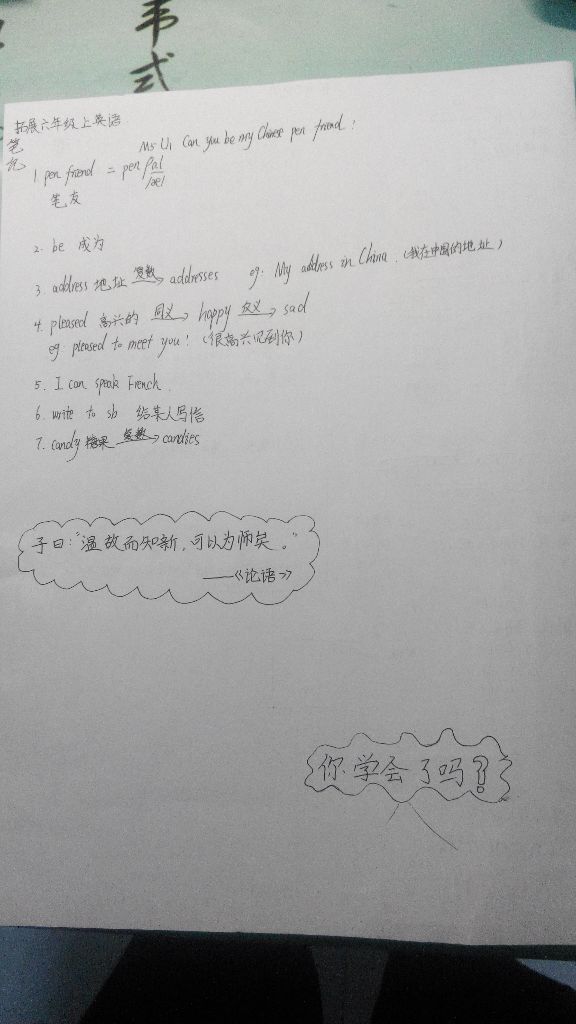 韦
式
拓展六年级上英语
笔
记
Ms Li Can you be my Chinese pen friend?
1. pen friend = pen pal
/æ/
笔友
2. be 成为
3. address 地址 复数→ addresses eg: My address in China. (我在中国的地址)
4. pleased 高兴的 同义→ happy 反义→ sad
eg: pleased to meet you! (很高兴见到你)
5. I can speak French.
6. write to sb 给某人写信
7. candy 糖果 复数→ candies
子曰:“温故而知新,可以为师矣。”
——《论语》
你学会了吗?